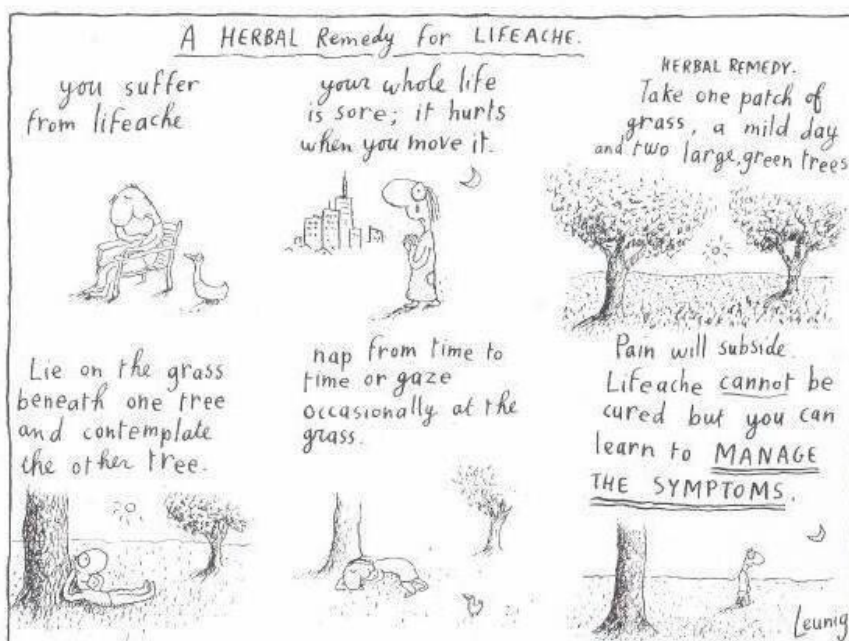 A HERBAL Remedy for LIFEACHE.
you suffer
from lifeache
your whole life
is sore; it hurts
when you move it.
HERBAL REMEDY.
Take one patch of
grass, a mild day
and two large, green trees
Lie on the grass
beneath one tree
and contemplate
the other tree.
nap from time to
time or gaze
occasionally at the
grass.
Pain will subside.
Lifeache cannot be
cured but you can
learn to MANAGE
THE SYMPTOMS.
Leunig